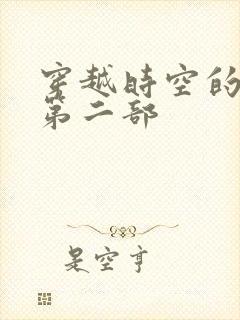 穿越時空的
第二部
是空亨